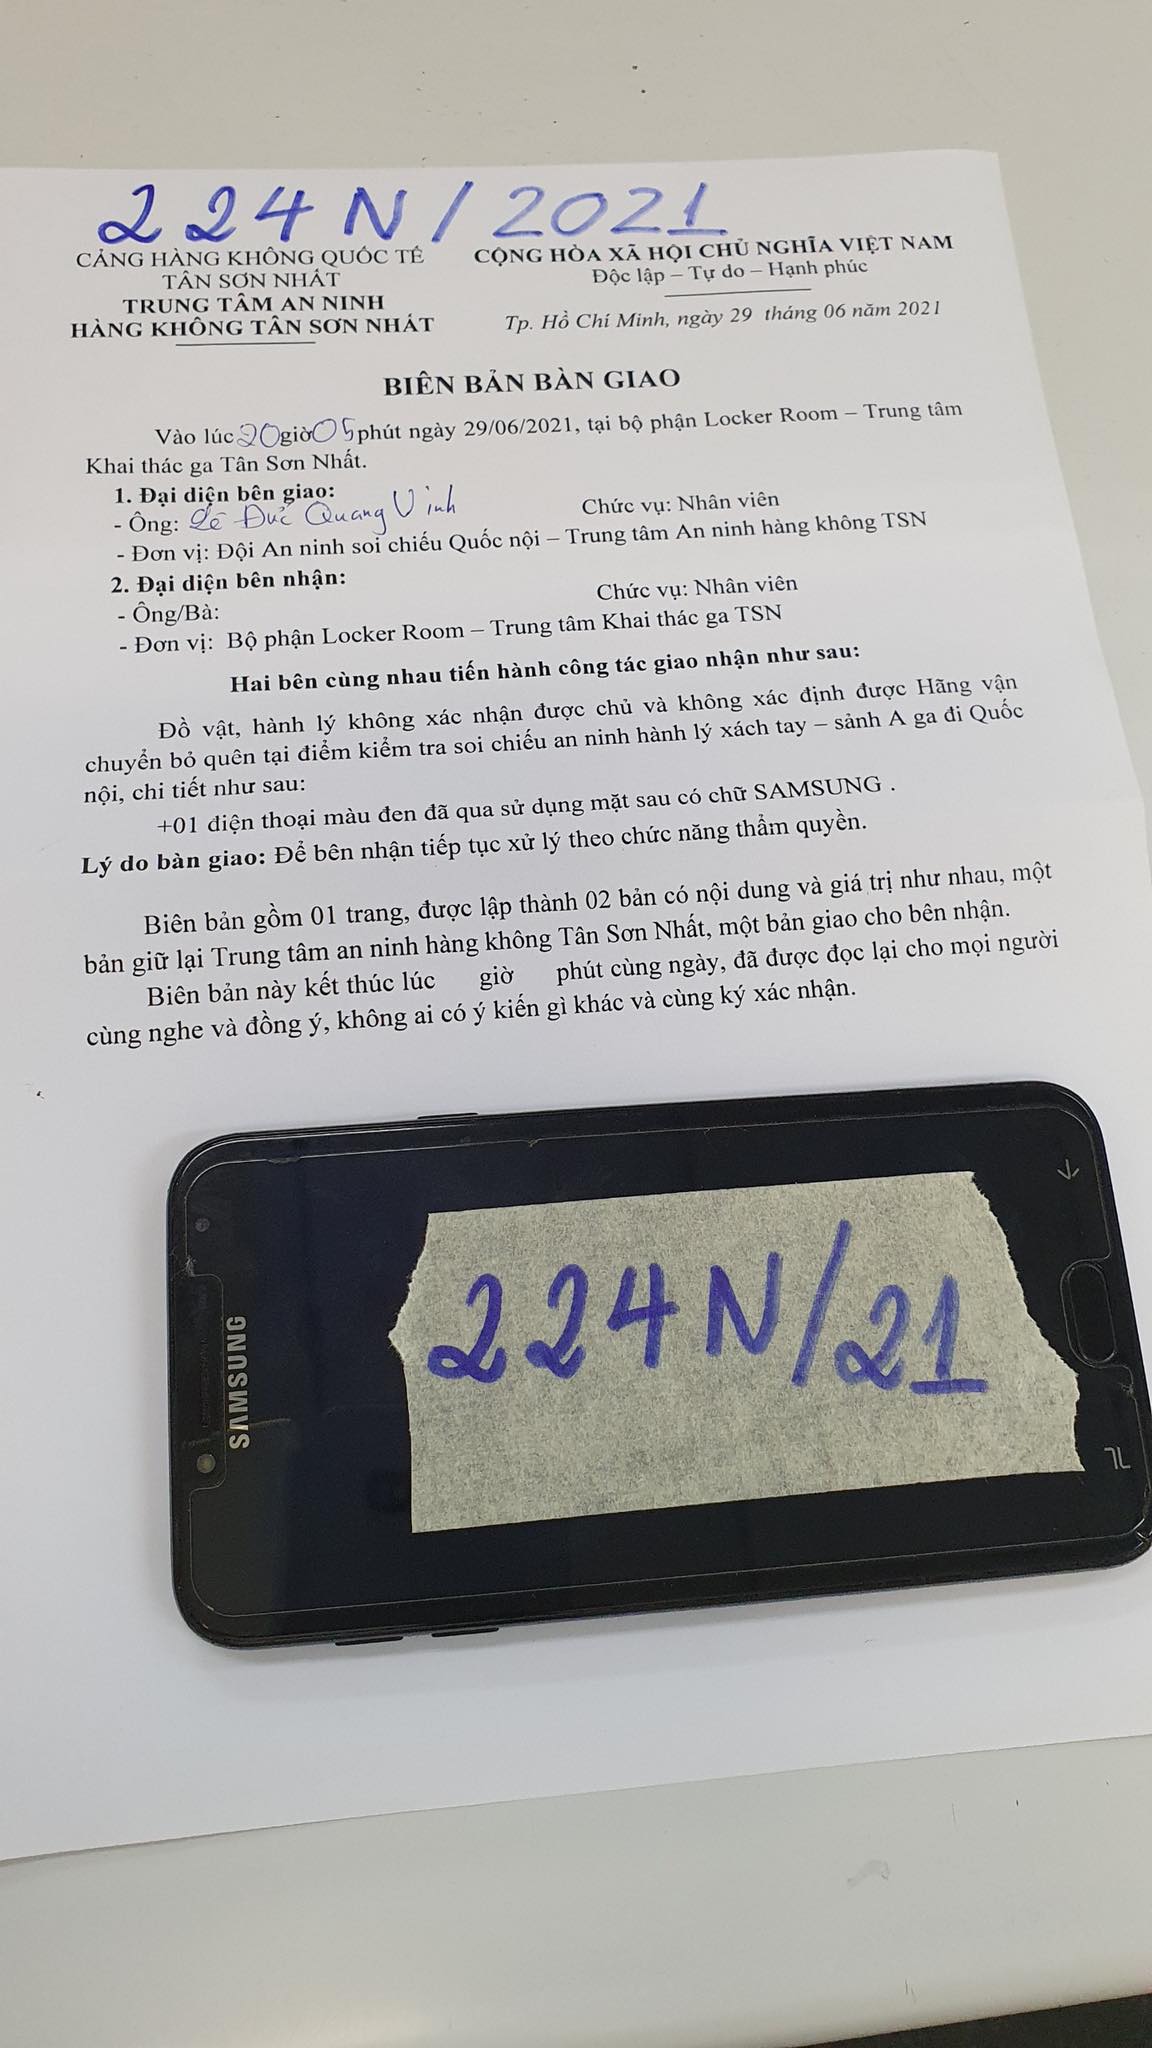 224N/2021
CẢNG HÀNG KHÔNG QUỐC TẾ
TÂN SƠN NHẤT
TRUNG TÂM AN NINH
HÀNG KHÔNG TÂN SƠN NHẤT
CỘNG HÒA XÃ HỘI CHỦ NGHĨA VIỆT NAM
Độc lập – Tự do – Hạnh phúc
Tp. Hồ Chí Minh, ngày 29 tháng 06 năm 2021
BIÊN BẢN BÀN GIAO
Vào lúc 20 giờ 05 phút ngày 29/06/2021, tại bộ phận Locker Room – Trung tâm
Khai thác ga Tân Sơn Nhất.
1. Đại diện bên giao:
- Ông: Lê Đức Quang Vinh Chức vụ: Nhân viên
- Đơn vị: Đội An ninh soi chiếu Quốc nội – Trung tâm An ninh hàng không TSN
2. Đại diện bên nhận:
- Ông/Bà: Chức vụ: Nhân viên
- Đơn vị: Bộ phận Locker Room – Trung tâm Khai thác ga TSN
Hai bên cùng nhau tiến hành công tác giao nhận như sau:
Đồ vật, hành lý không xác nhận được chủ và không xác định được Hãng vận
chuyển bỏ quên tại điểm kiểm tra soi chiếu an ninh hành lý xách tay – sảnh A ga đi Quốc
nội, chi tiết như sau:
+01 điện thoại màu đen đã qua sử dụng mặt sau có chữ SAMSUNG .
Lý do bàn giao: Để bên nhận tiếp tục xử lý theo chức năng thẩm quyền.
Biên bản gồm 01 trang, được lập thành 02 bản có nội dung và giá trị như nhau, một
bản giữ lại Trung tâm an ninh hàng không Tân Sơn Nhất, một bản giao cho bên nhận.
Biên bản này kết thúc lúc giờ phút cùng ngày, đã được đọc lại cho mọi người
cùng nghe và đồng ý, không ai có ý kiến gì khác và cùng ký xác nhận.
SAMSUNG
224N/21